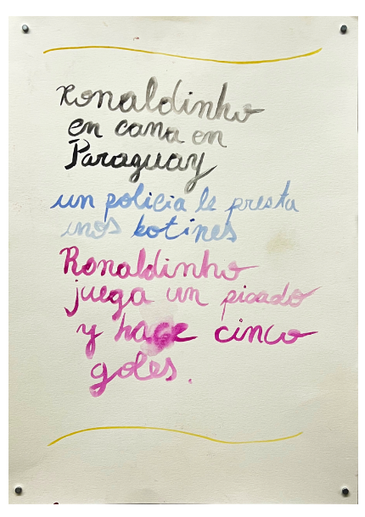 Ronaldinho
en cana en
Paraguay
un policia le presta
unos botines
Ronaldinho
juega un picado
y hace cinco
goles.